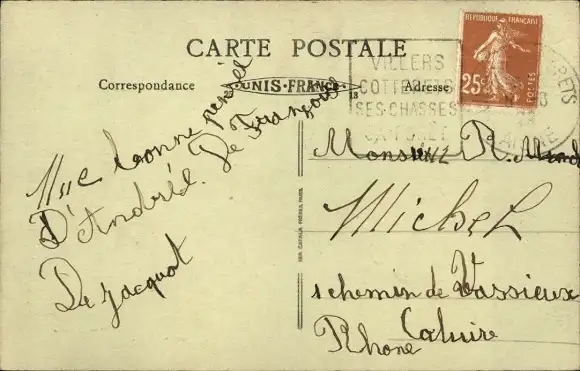 CARTE POSTALE
Correspondance
UNIS-FRANCE
13
Adresse
REPUBLIQUE FRANÇAISE
25c
POSTES
VILLERS
COTTERETS
SES CHASSES
SA FORET
AISNE
Une bonne pensée
D'Andrée. De Françoise
De Jacquot
Monsieur R.
Michel
1 chemin de Vassieux
Caluire
Rhone